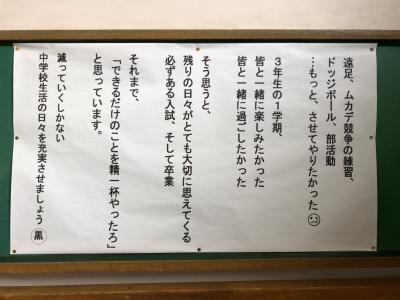 遠足、ムカデ競争の練習、
ドッジボール、部活動
…もっと、させてやりたかった☹
3年生の1学期、
皆と一緒に楽しみたかった
皆と一緒に過ごしたかった
そう思うと、
残りの日々がとても大切に思えてくる
必ずある入試、そして卒業
それまで、
「できるだけのことを精一杯やったろ」
と思っています。
減っていくしかない
中学校生活の日々を充実させましょう ㊤黒